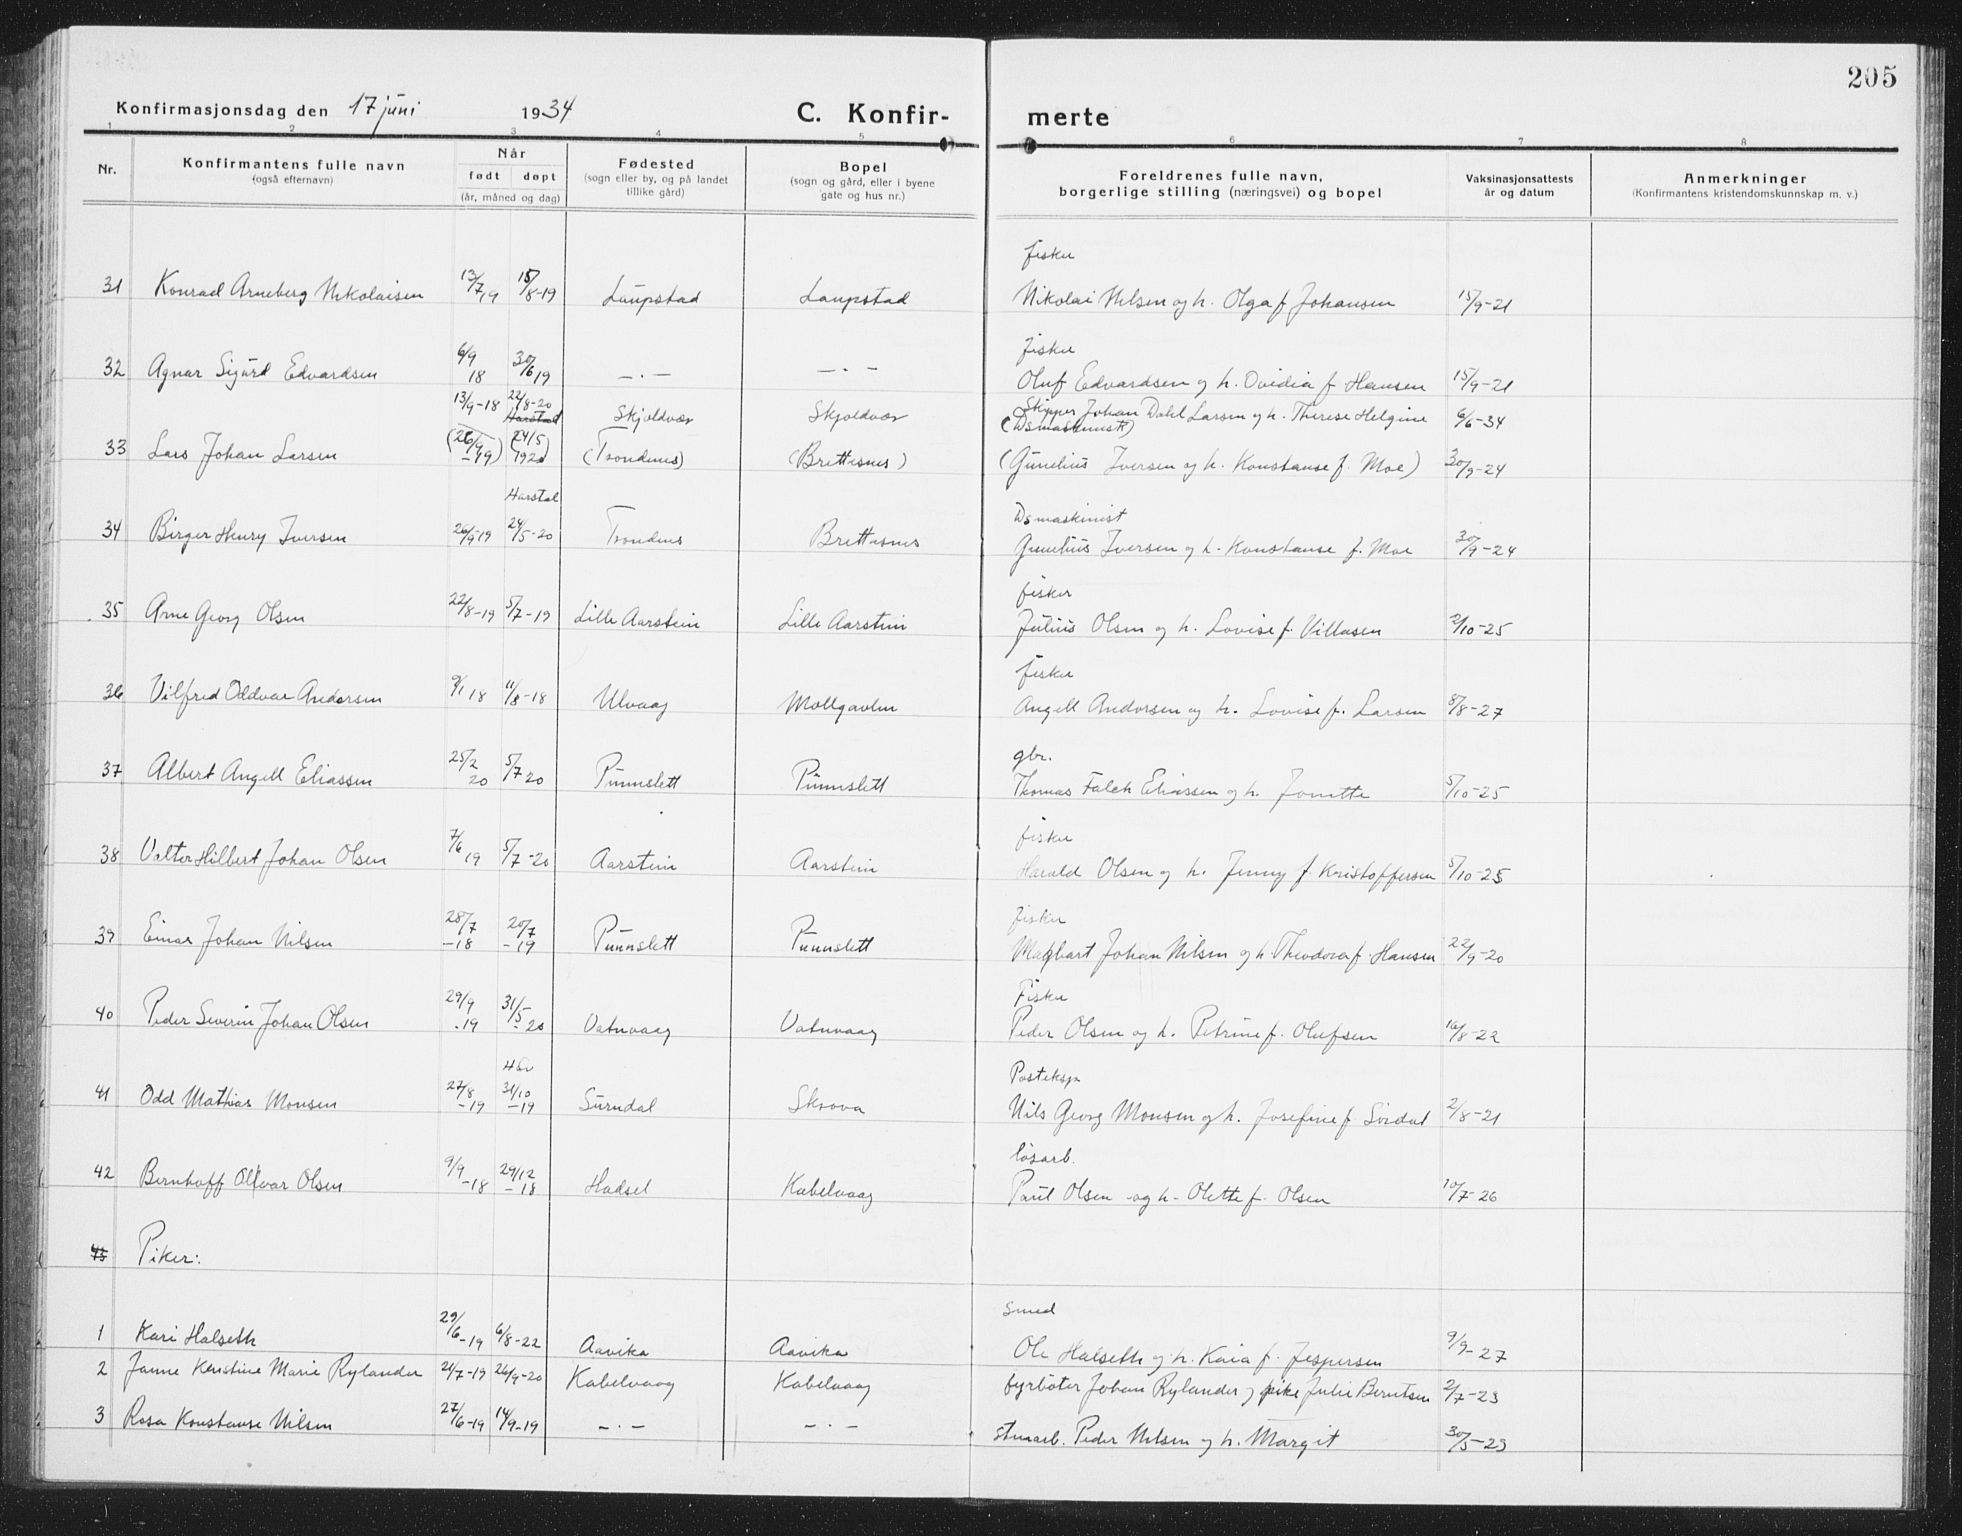 205
Konfirmasjonsdag den 17 juni 1934 C. Konfir- merte
1 2 3 4 5 6 7 8
Nr. Konfirmantens fulle navn (også efternavn) Når født døpt (år, måned og dag) Fødested (sogn eller by, og på landet tillike gård) Bopel (sogn og gård, eller i byene gate og hus nr.) Foreldrenes fulle navn, borgerlige stilling (næringsvei) og bopel Vaksinasjonsattests år og datum Anmerkninger (Konfirmantens kristendomskunnskap m. v.)
fisker
31 Konrad Arneberg Nikolaisen 13/7 19 15/8-19 Laupstad Laupstad Nikolai Nilsen og h. Olga f Johansen 15/9-21
fisker
32 Agnar Sigurd Edvardsen 6/9 18 30/6 19 —·— —·— Oluf Edvardsen og h. Ovidia f. Hansen 15/9-21
13/9-18 22/8-20 Skjoldvær Skjoldvær Skipper Johan Dahl Larsen og h. Therese Helgine 6/6-34
Harstad (Dsmaskinist)
33 Lars Johan Larsen (26/9 -19) (24/5 1920) (Trondenes) (Brettesnes) (Gunelius Iversen og h. Konstanse f. Moe) 30/9-24
Harstad Dsmaskinist
34 Birger Henry Iversen 26/9 19 24/5-20 Trondenes Brettesnes Gunelius Iversen og h. Konstanse f. Moe 30/9-24
fisker
35 Arne Georg Olsen 22/8-19 5/7-19 Lille Aarstein Lille Aarstein Julius Olsen og h. Lovise f. Villasen 2/10-25
fisker
36 Vilfred Oddvar Andorsen 9/1 18 11/8-18 Ulvaag Mollgavlen Angell Andorsen og h. Lovise f. Larsen 8/8-27
gbr.
37 Albert Angell Eliassen 25/2 20 5/7 20 Pünnslett Pünnslett Thomas Falch Eliassen og h. Jonette 5/10-25
fisker
38 Valter Hilbert Johan Olsen 7/6 19 5/7-20 Aarstein Aarstein Harald Olsen og h. Jenny f. Kristoffersen 5/10-25
fisker
39 Einar Johan Nilsen 28/7 -18 20/7 -19 Pünnslett Pünnslett Magbart Johan Nilsen og h. Theodora f. Hansen 22/9-20
Fisker
40 Peder Severin Johan Olsen 29/9 -19 31/5 -20 Vatnvaag Vatnvaag Peder Olsen og h. Petrine f. Olufsen 16/8-22
Posteksp
41 Odd Mathias Monsen 27/8 -19 31/10 -19 Surndal Skrova Nils Georg Monsen og h. Josefine f. Sördal 2/8-21
løsarb.
42 Bernhoff Olivar Olsen 9/9 -18 29/12 -18 Hadsel Kabelvaag Paul Olsen og h. Olette f. Olsen 10/7-26
43 Piker:
smed
1 Kari Halseth 29/6-19 6/8-22 Aavika Aavika Ole Halseth og h. Kaia f. Jespersen 9/9-27
2 Janne Kristine Marie Rylander 21/7-19 26/9-20 Kabelvaag Kabelvaag fyrbøter Johan Rylander og pike Julie Berntsen 2/7-23
3 Rosa Konstanse Nilsen 27/6-19 14/9-19 —·— —·— stuearb. Peder Nilsen og h. Margit 30/5-23